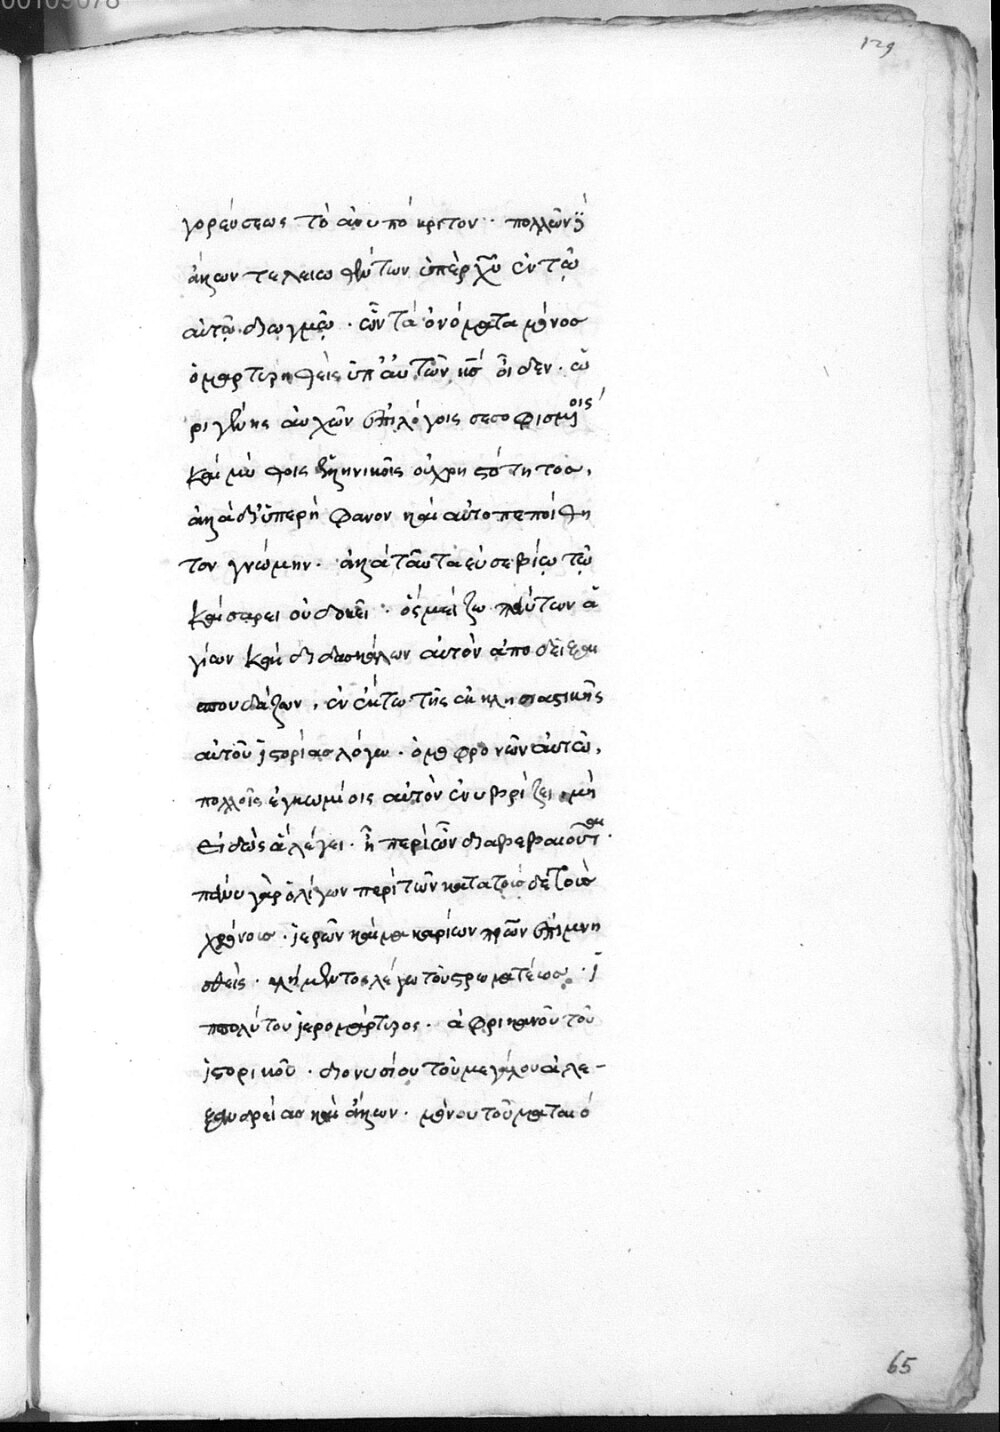 00109078
129
γορεύσεως τὸ ἀνυπόκριτον · πολλῶν δ
ἄλλων τελειωθέντων ὑπὲρ χῦ ἐν τῷ
αὐτῷ διωγμῷ · ὧν τὰ ὀνόματα μόνος
ὁ μαρτυρηθεὶς ὑπ' αὐτῶν κς οἶδεν · ὠ
ριγένης αὐχῶν ἐπὶ λόγοις σεσοφισμένοις
καὶ μύθοις ἑλληνικοῖς οὐ χρηστότητος,
ἀλλὰ δι' ὑπερήφανον καὶ αὐτοπεποίθη
τον γνώμην · ἀλλὰ ταῦτα εὐσεβίῳ τῷ
καίσαρει οὐ δοκεῖ · ὃς μείζω πάντων ἁ
γίων καὶ διδασκάλων αὐτὸν ἀποδεῖξαι
σπουδάζων, ἐν ἕκτω τῆς ἐκκλησιαστικῆς
αὐτοῦ ἱστορίας λόγω · ὁμοφρονῶν αὐτῶ,
πολλοῖς ἐγκωμίοις αὐτὸν ἐνυβρίζει · μὴ
εἰδὼς ἃ λέγει · ἢ περὶ ὧν διαβεβαιοῦται ·
πάνυ γὰρ ὀλίγων περὶ τῶν κατὰ τοὺσδε τοὺς
χρόνους · ἱερῶν καὶ μακαρίων πρων ἐπιμνη
σθείς · κλήμεντος λέγω τοῦ στρωματέως · ἱ
ππολύτου ἱερομάρτυρος · ἀφρικανοῦ τοῦ
ἱστορικοῦ · διονυσίου τοῦ μεγάλου ἀλε-
ξανδρείας καὶ ἄλλων · μόνου τοῦ ματαιό
65